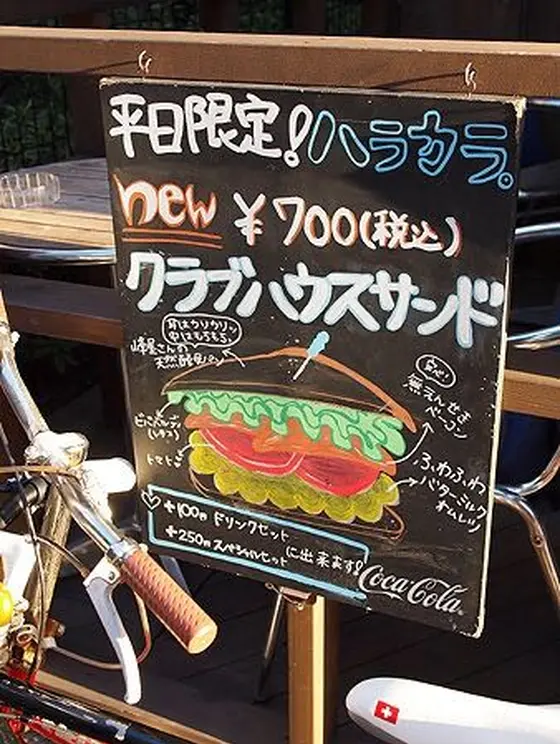 平日限定!ハラカラ。
new ¥700(税込)
クラブハウスサンド
耳はカリカリッ
中はもちもち。
峰屋さんの
天然酵母パン
(レタス)
トマト
安心!
無えんせき
ベーコン
ふわふわ
バターミルク
オムレツ
+100円 ドリンクセット
+250円 スペシャルセット
に出来ます!
Coca-Cola